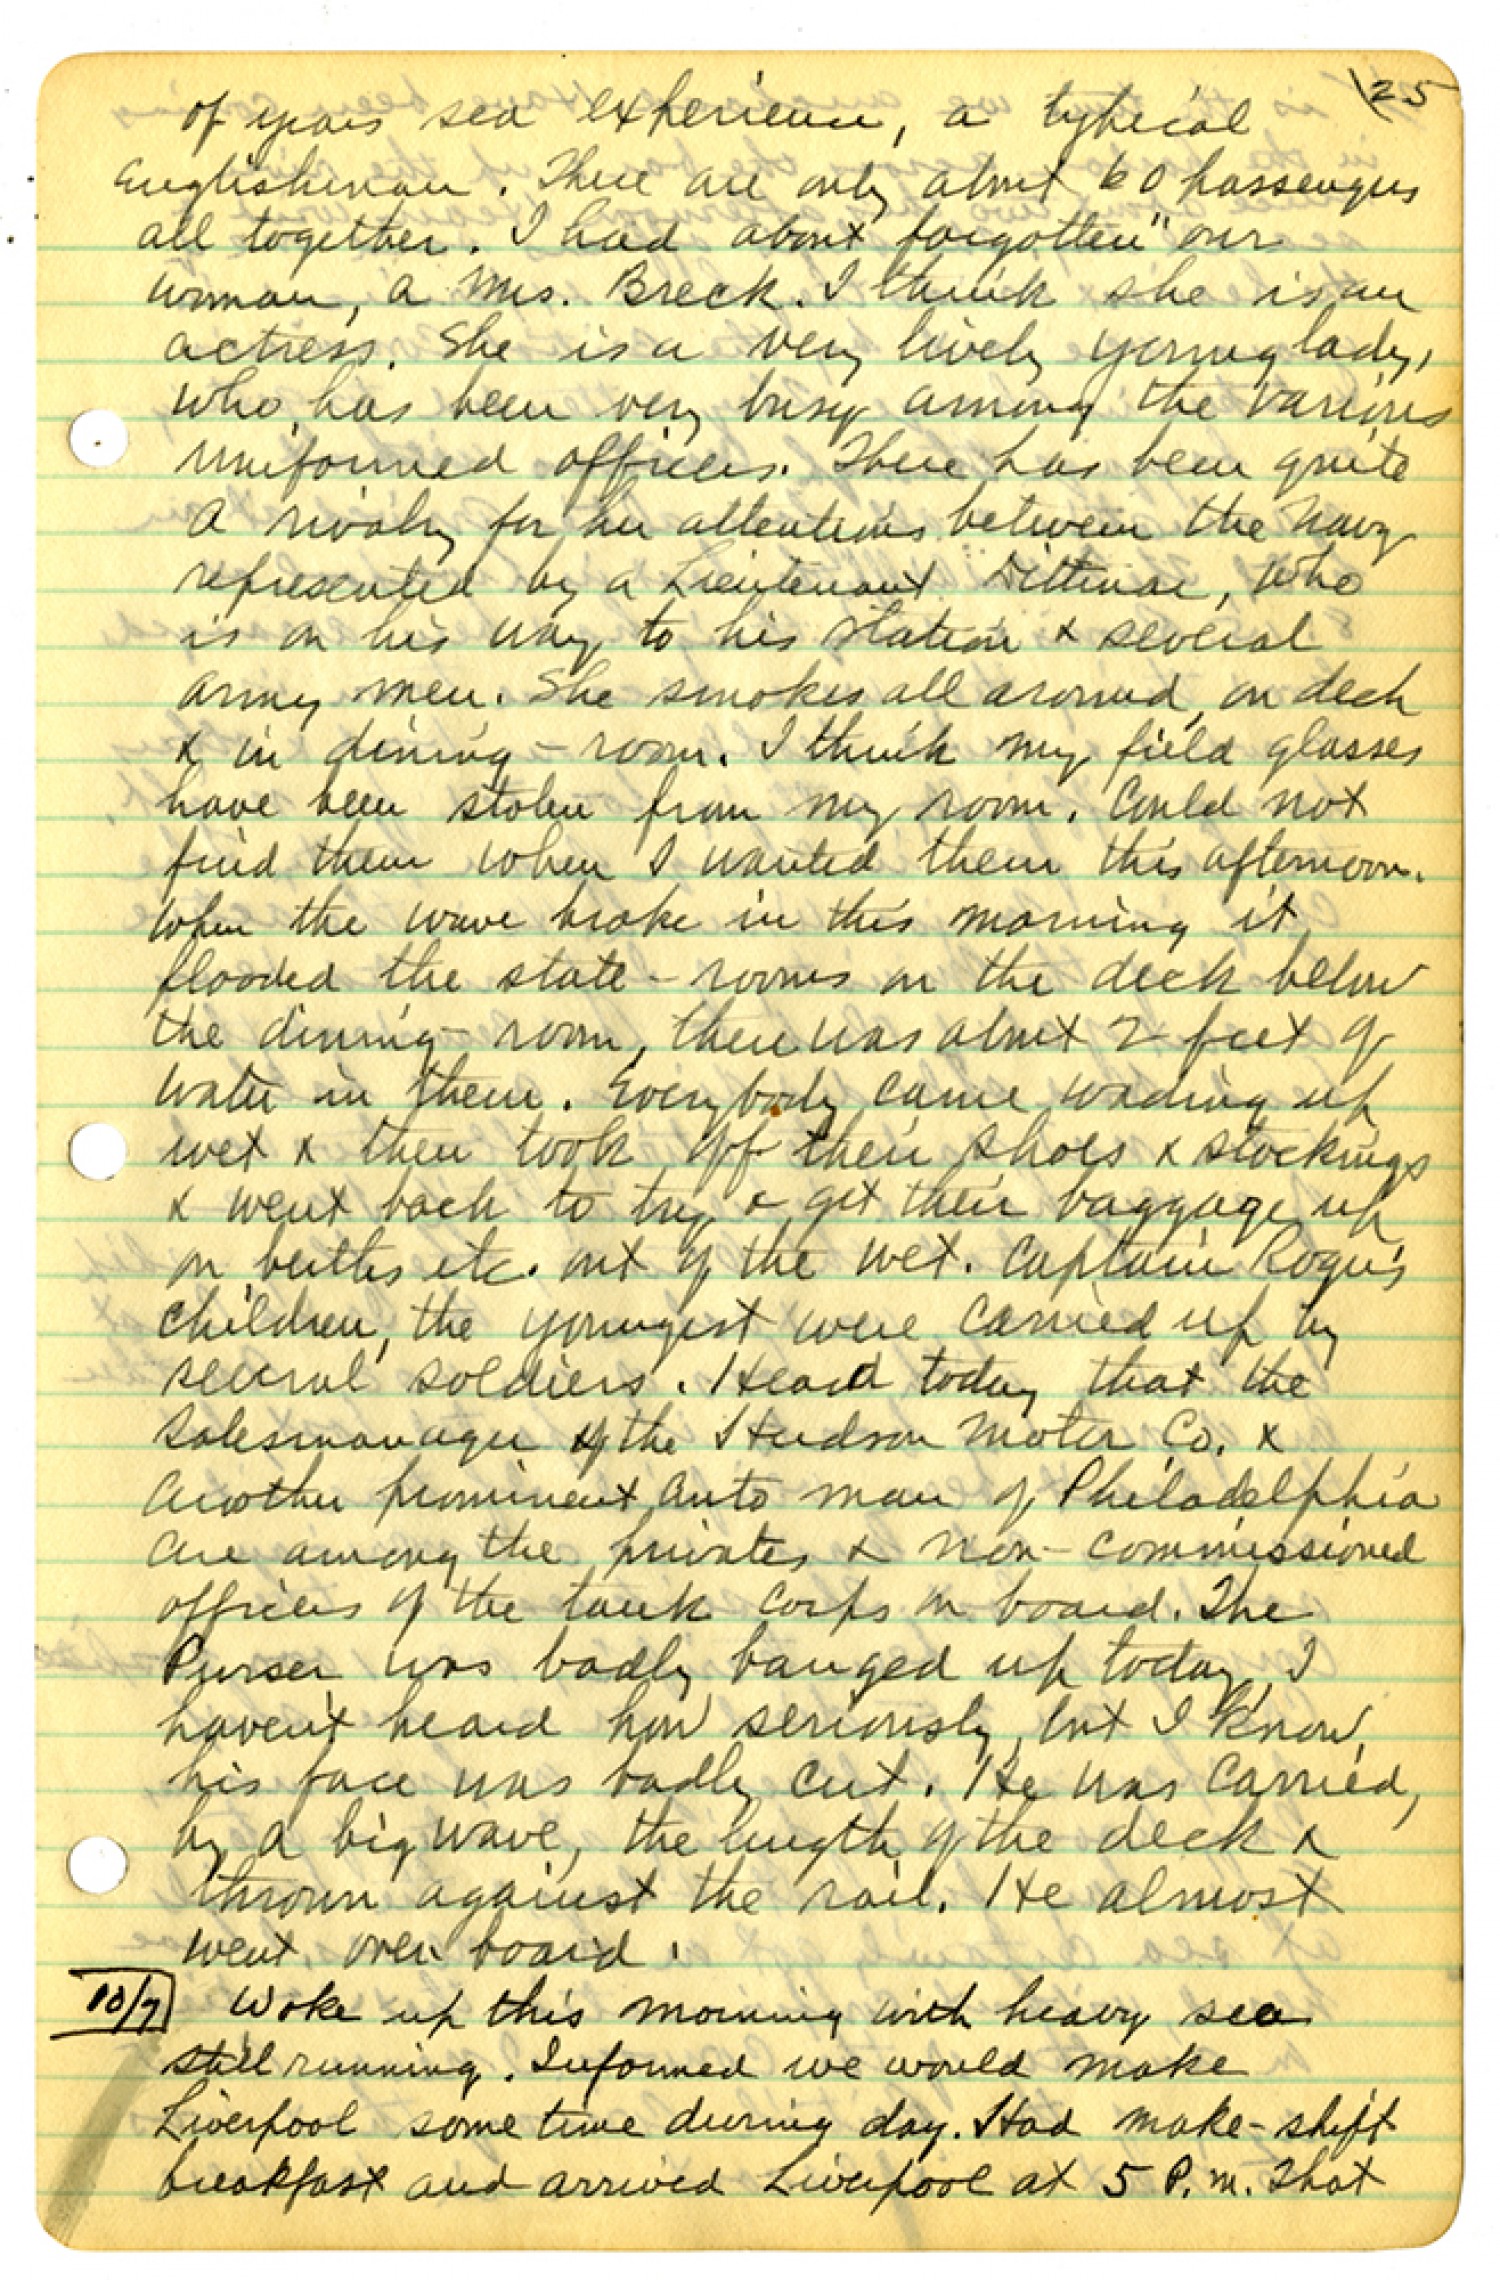 25
of years sea experience, a typical
Englishman. There are only about 60 passengers
all together. I had about forgotten "our
woman, a Mrs. Breck. I think she is an
actress. She is a very lively young lady,
who has been very busy among the various
uniformed officers. There has been quite
a rivalry for her attentions between the Navy
represented by a Lieutenant Dittmar, who
is on his way to his station & several
army men. She smokes all around, on deck
& in dining-room. I think my field glasses
have been stolen from my room. Could not
find them when I wanted them this afternoon.
When the wave broke in this morning it
flooded the state-rooms on the deck below
the dining-room, there was about 2 feet of
water in them. Everybody came wading up
wet & then took off their shoes & stockings
& went back to try & get their baggage up
on berths etc. out of the wet. Captain
children, the youngest were carried up by
several soldiers. Heard today that the
Salesmanager of the Hudson Motor Co. &
another prominent auto man of Philadelphia
are among the privates & non-commissioned
officers of the tank corps on board. The
Purser was badly banged up today, I
haven't heard how seriously, but I know
his face was badly cut. He was carried,
by a big wave, the length of the deck &
thrown against the rail. He almost
went over board.
10/7 Woke up this morning with heavy sea
still running. Informed we would make
Liverpool some time during day. Had make-shift
breakfast and arrived Liverpool at 5 P.M. That